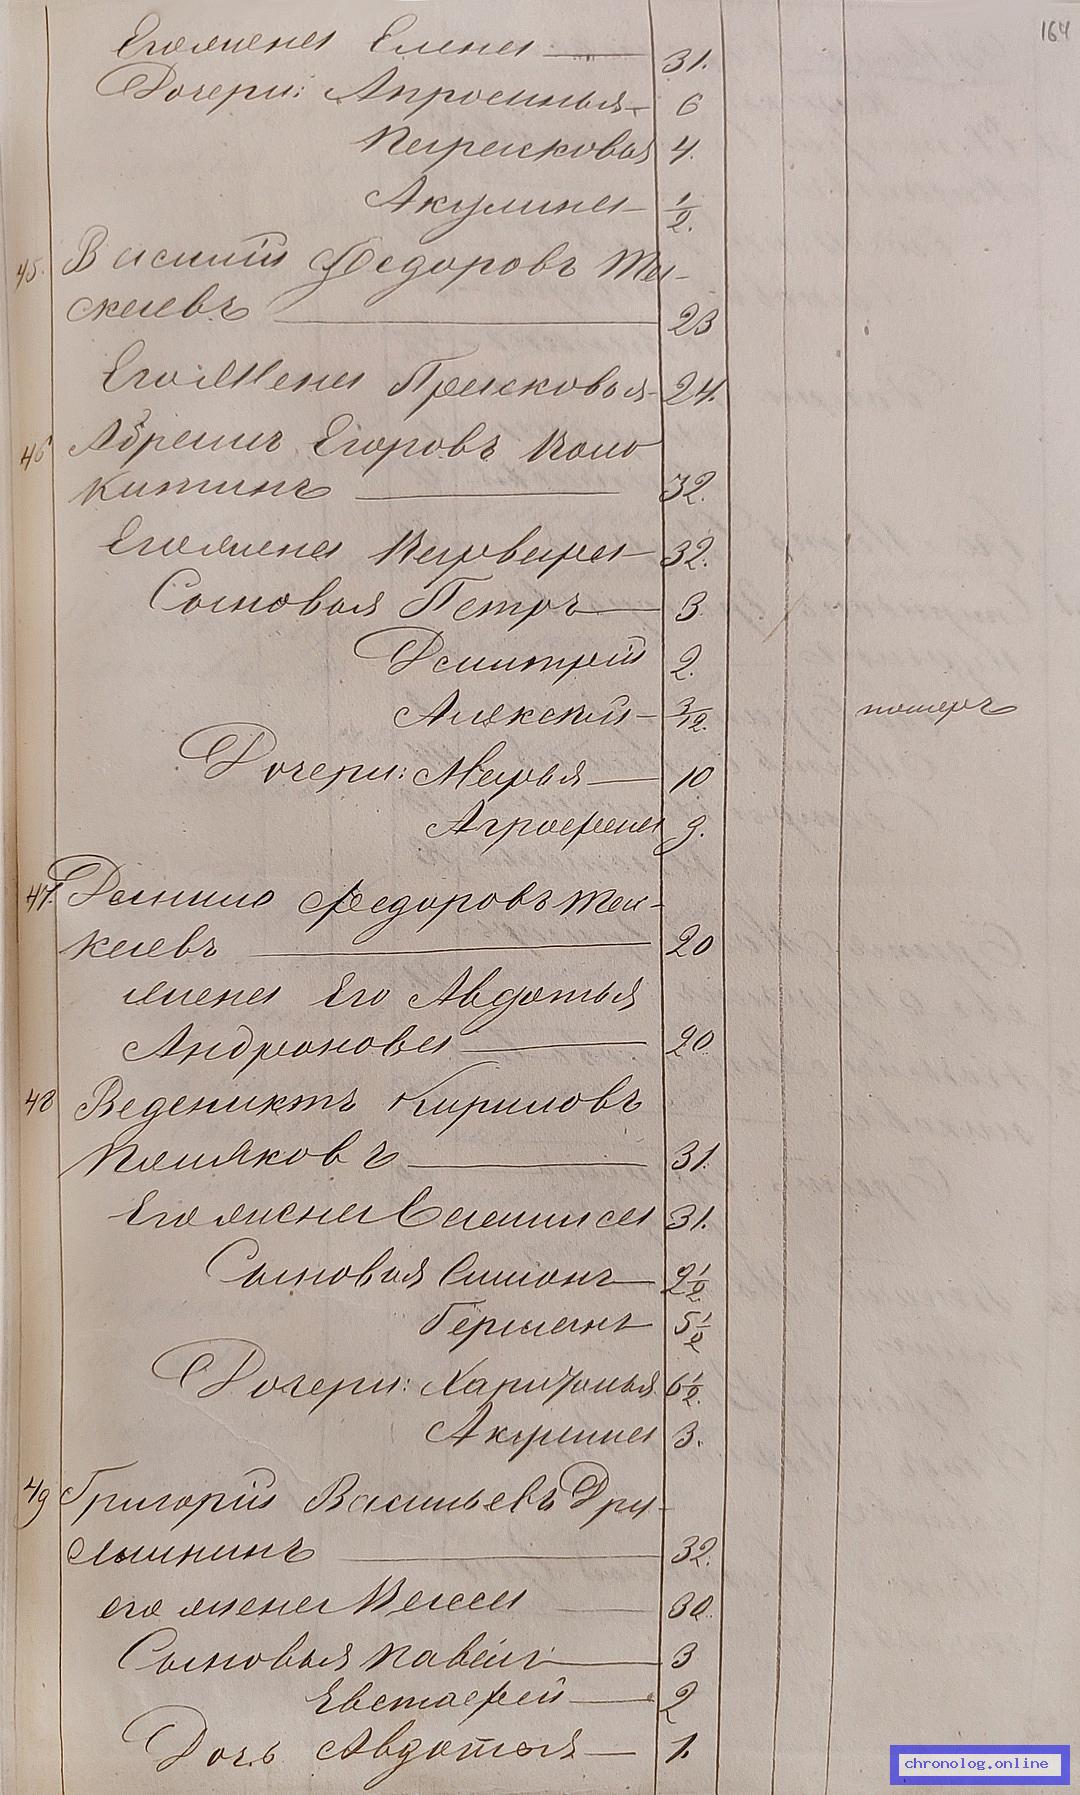 164
Его жена Елена 31.
Дочери: Апросинья 6
Парасковья 4.
Акулина 1/2.
45. Василий Федоровъ
23
Его Жена Прасковья 24.
46 Абрамъ Егоровъ Коло
китинъ 32.
Его жена Варвара 32.
Сыновья Петръ 3.
Дмитрей 2.
Алексей 3/12. померъ
Дочери: Марья 10
Аграфена 9.
47. Данило Федоровъ
20
жена Его Авдотья
Андронова 20.
48 Ведениктъ Кириловъ
Поляковъ 31.
Его жена Васелиса 31.
Сыновья Симонъ 9 1/2
Германъ 5 1/2
Дочери: Харитонья 6 1/2.
3.
49 Григорий Васильевъ
32.
его жена Васса 30.
Сыновья Павелъ 3
Евстафей 2
Дочь Авдотья 1.
chronolog.online